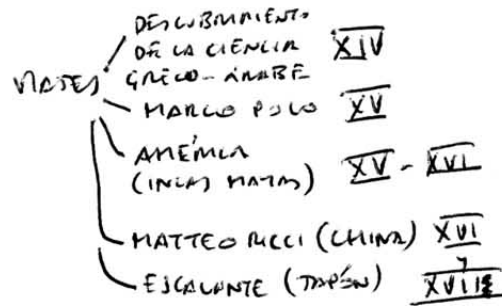 VIAJES
DESCUBRIMIENTO
DE LA CIENCIA XIV
GRECO-ÁRABE
MARCO POLO XV
AMÉRICA
(INCAS MAYAS) XV - XVI
MATTEO RICCI (CHINA) XVI
ESCALANTE (JAPÓN)